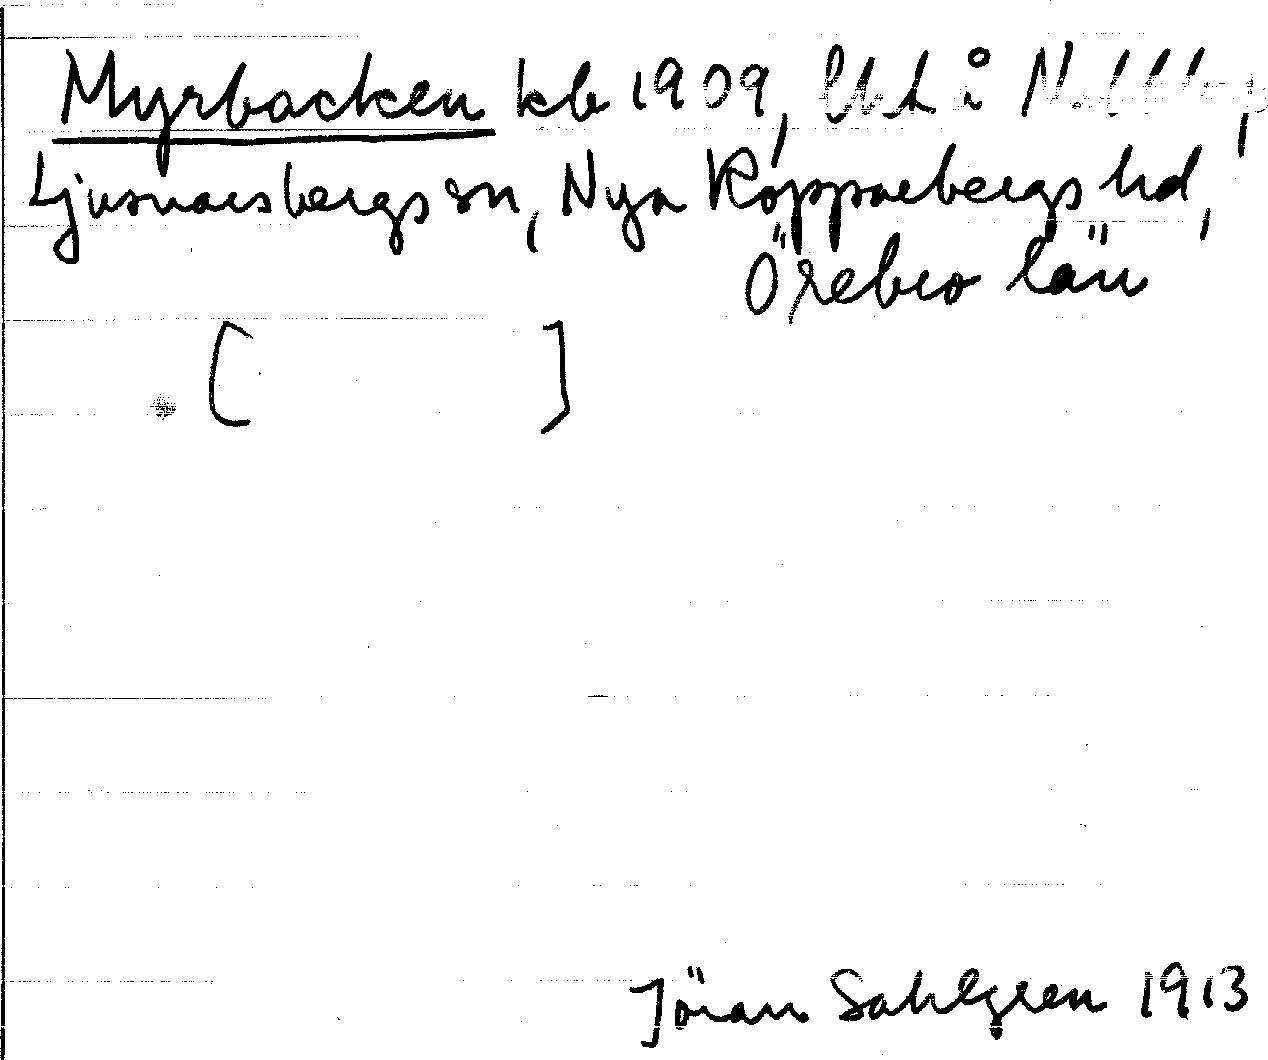 Myrbacken kb 1909, å
Ljusnarsbergs sn, Nya Kopparbergs hd,
Örebro län
[ ]
Jöran Sahlgren 1913